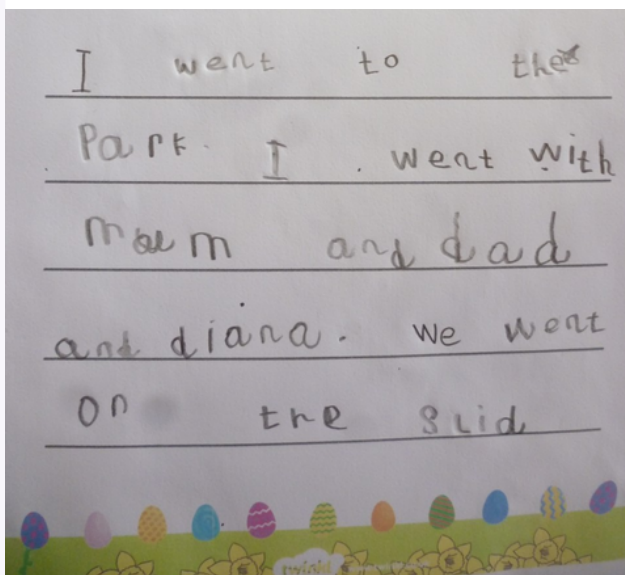 I went to the
Park. I went with
mum and dad
and diana. We went
on the slid
twinkl